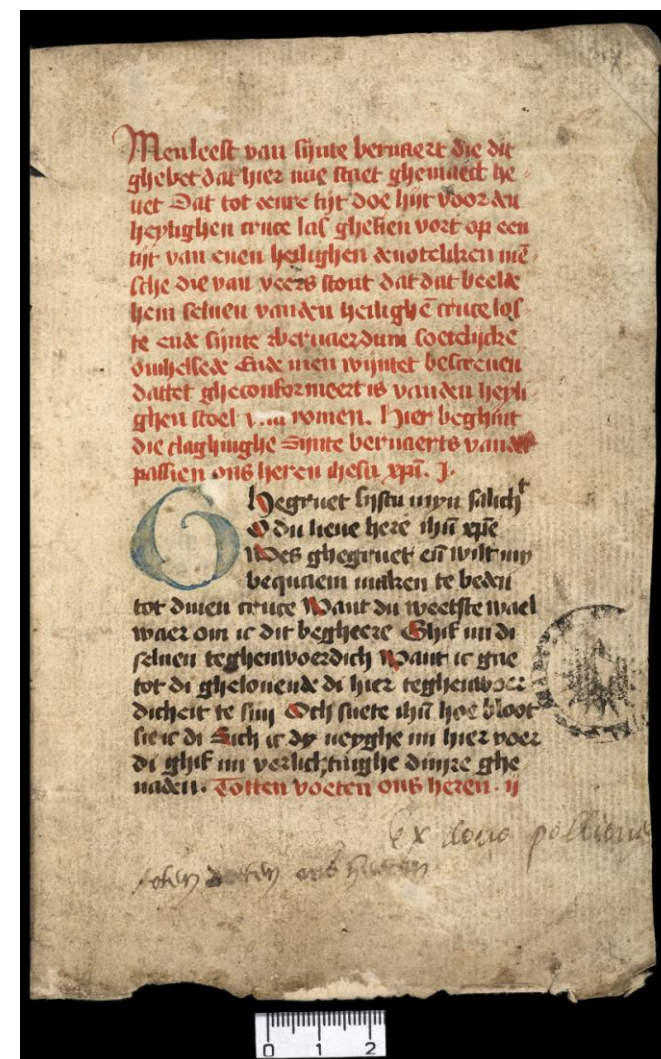 Men leest van sijnte bernaert die dit
ghebet dat hier nae staet ghemaect he-
uet Dat tot eenre tijt doe hijt voor den
heylighen cruce las ghesien vort op een
tijt van enen heilighen deuoteliken mē-
sche die van veers stont dat dat beelde
hem seluen vanden heilighē cruce los
te ende sijnte bernaerdum soetelijcke
omhelsede Ende men vijntet bescreuen
dattet gheconformeert is vanden heyli-
ghen stoel van romen. Hier beghint
die claghinghe sijnte bernaerts vander
passien ons heren ihesu xpī. I.
Ghegruet bijstu mijn salich^t
O du lieue here ihū xpē
Wes ghegruet eñ wilt my
bequaem maken te beden
tot dinen cruce Want du weetste wael
waer om ic dit begheere Ghif mi di
seluen teghenwoerdich Want ic gae
tot di ghelouende di hier teghenwoer
dicheit te sijn Och suete ihū hoe bloot
sie ic di Sich ic dy neyghe mi hier voer
di ghif mi verlichtinghe dinre ghe
naden. Totten voeten ons heren. ij
ex dono
ons heeren